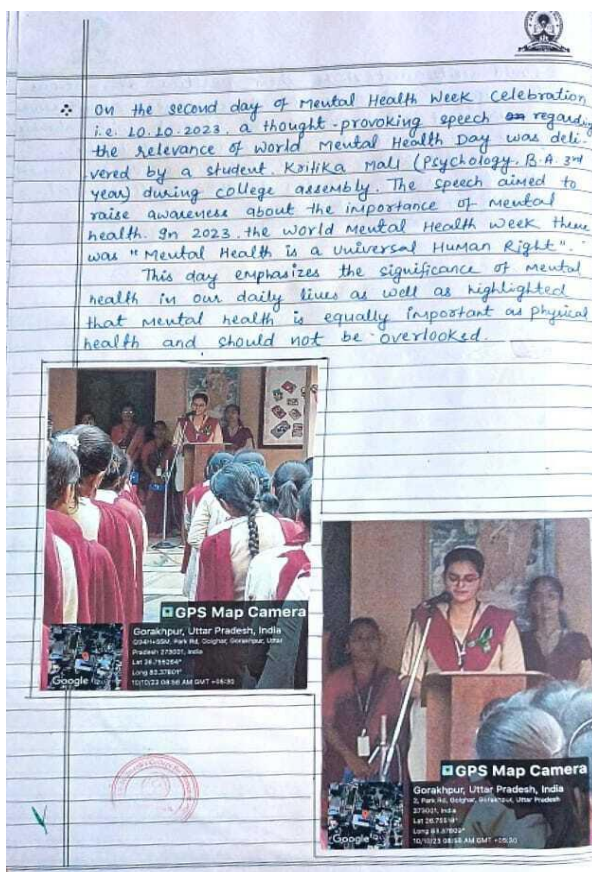 On the second day of Mental Health Week Celebration
i.e. 10.10.2023, a thought-provoking speech regarding
the relevance of World Mental Health Day was deli-
vered by a student, Kritika Mall (Psychology, B.A. 3rd
year) during college assembly. The speech aimed to
raise awareness about the importance of mental
health. In 2023, the world Mental Health Week theme
was "Mental Health is a Universal Human Right".
This day emphasizes the significance of mental
health in our daily lives as well as highlighted
that mental health is equally important as physical
health and should not be overlooked.
GPS Map Camera
Gorakhpur, Uttar Pradesh, India
Park Rd, Golghar, Gorakhpur, Uttar
Pradesh 273001, India
Google
10/10/23 08:56 AM GMT +05:30
GPS Map Camera
Gorakhpur, Uttar Pradesh, India
2, Park Rd, Golghar, Gorakhpur, Uttar Pradesh
273001, India
Google
10/10/23 08:56 AM GMT +05:30